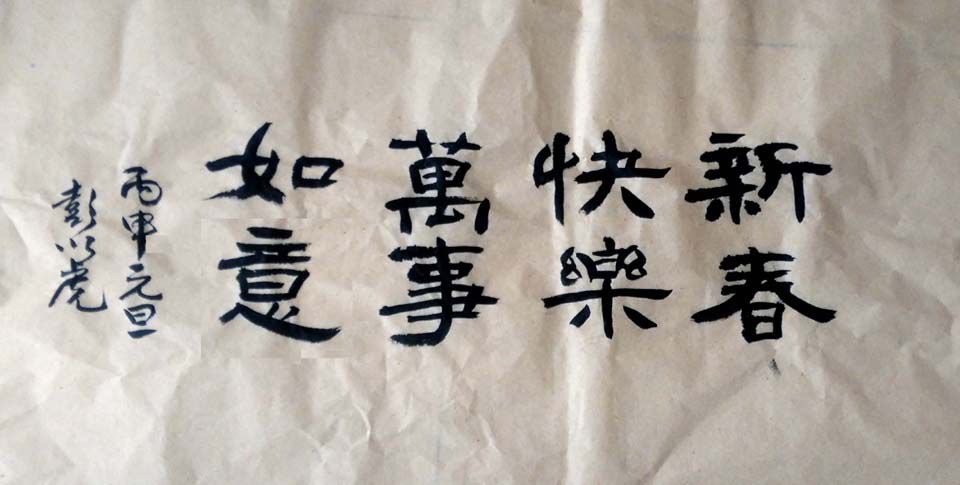 新春
快樂
萬事
如意
丙申元旦
彭以虎